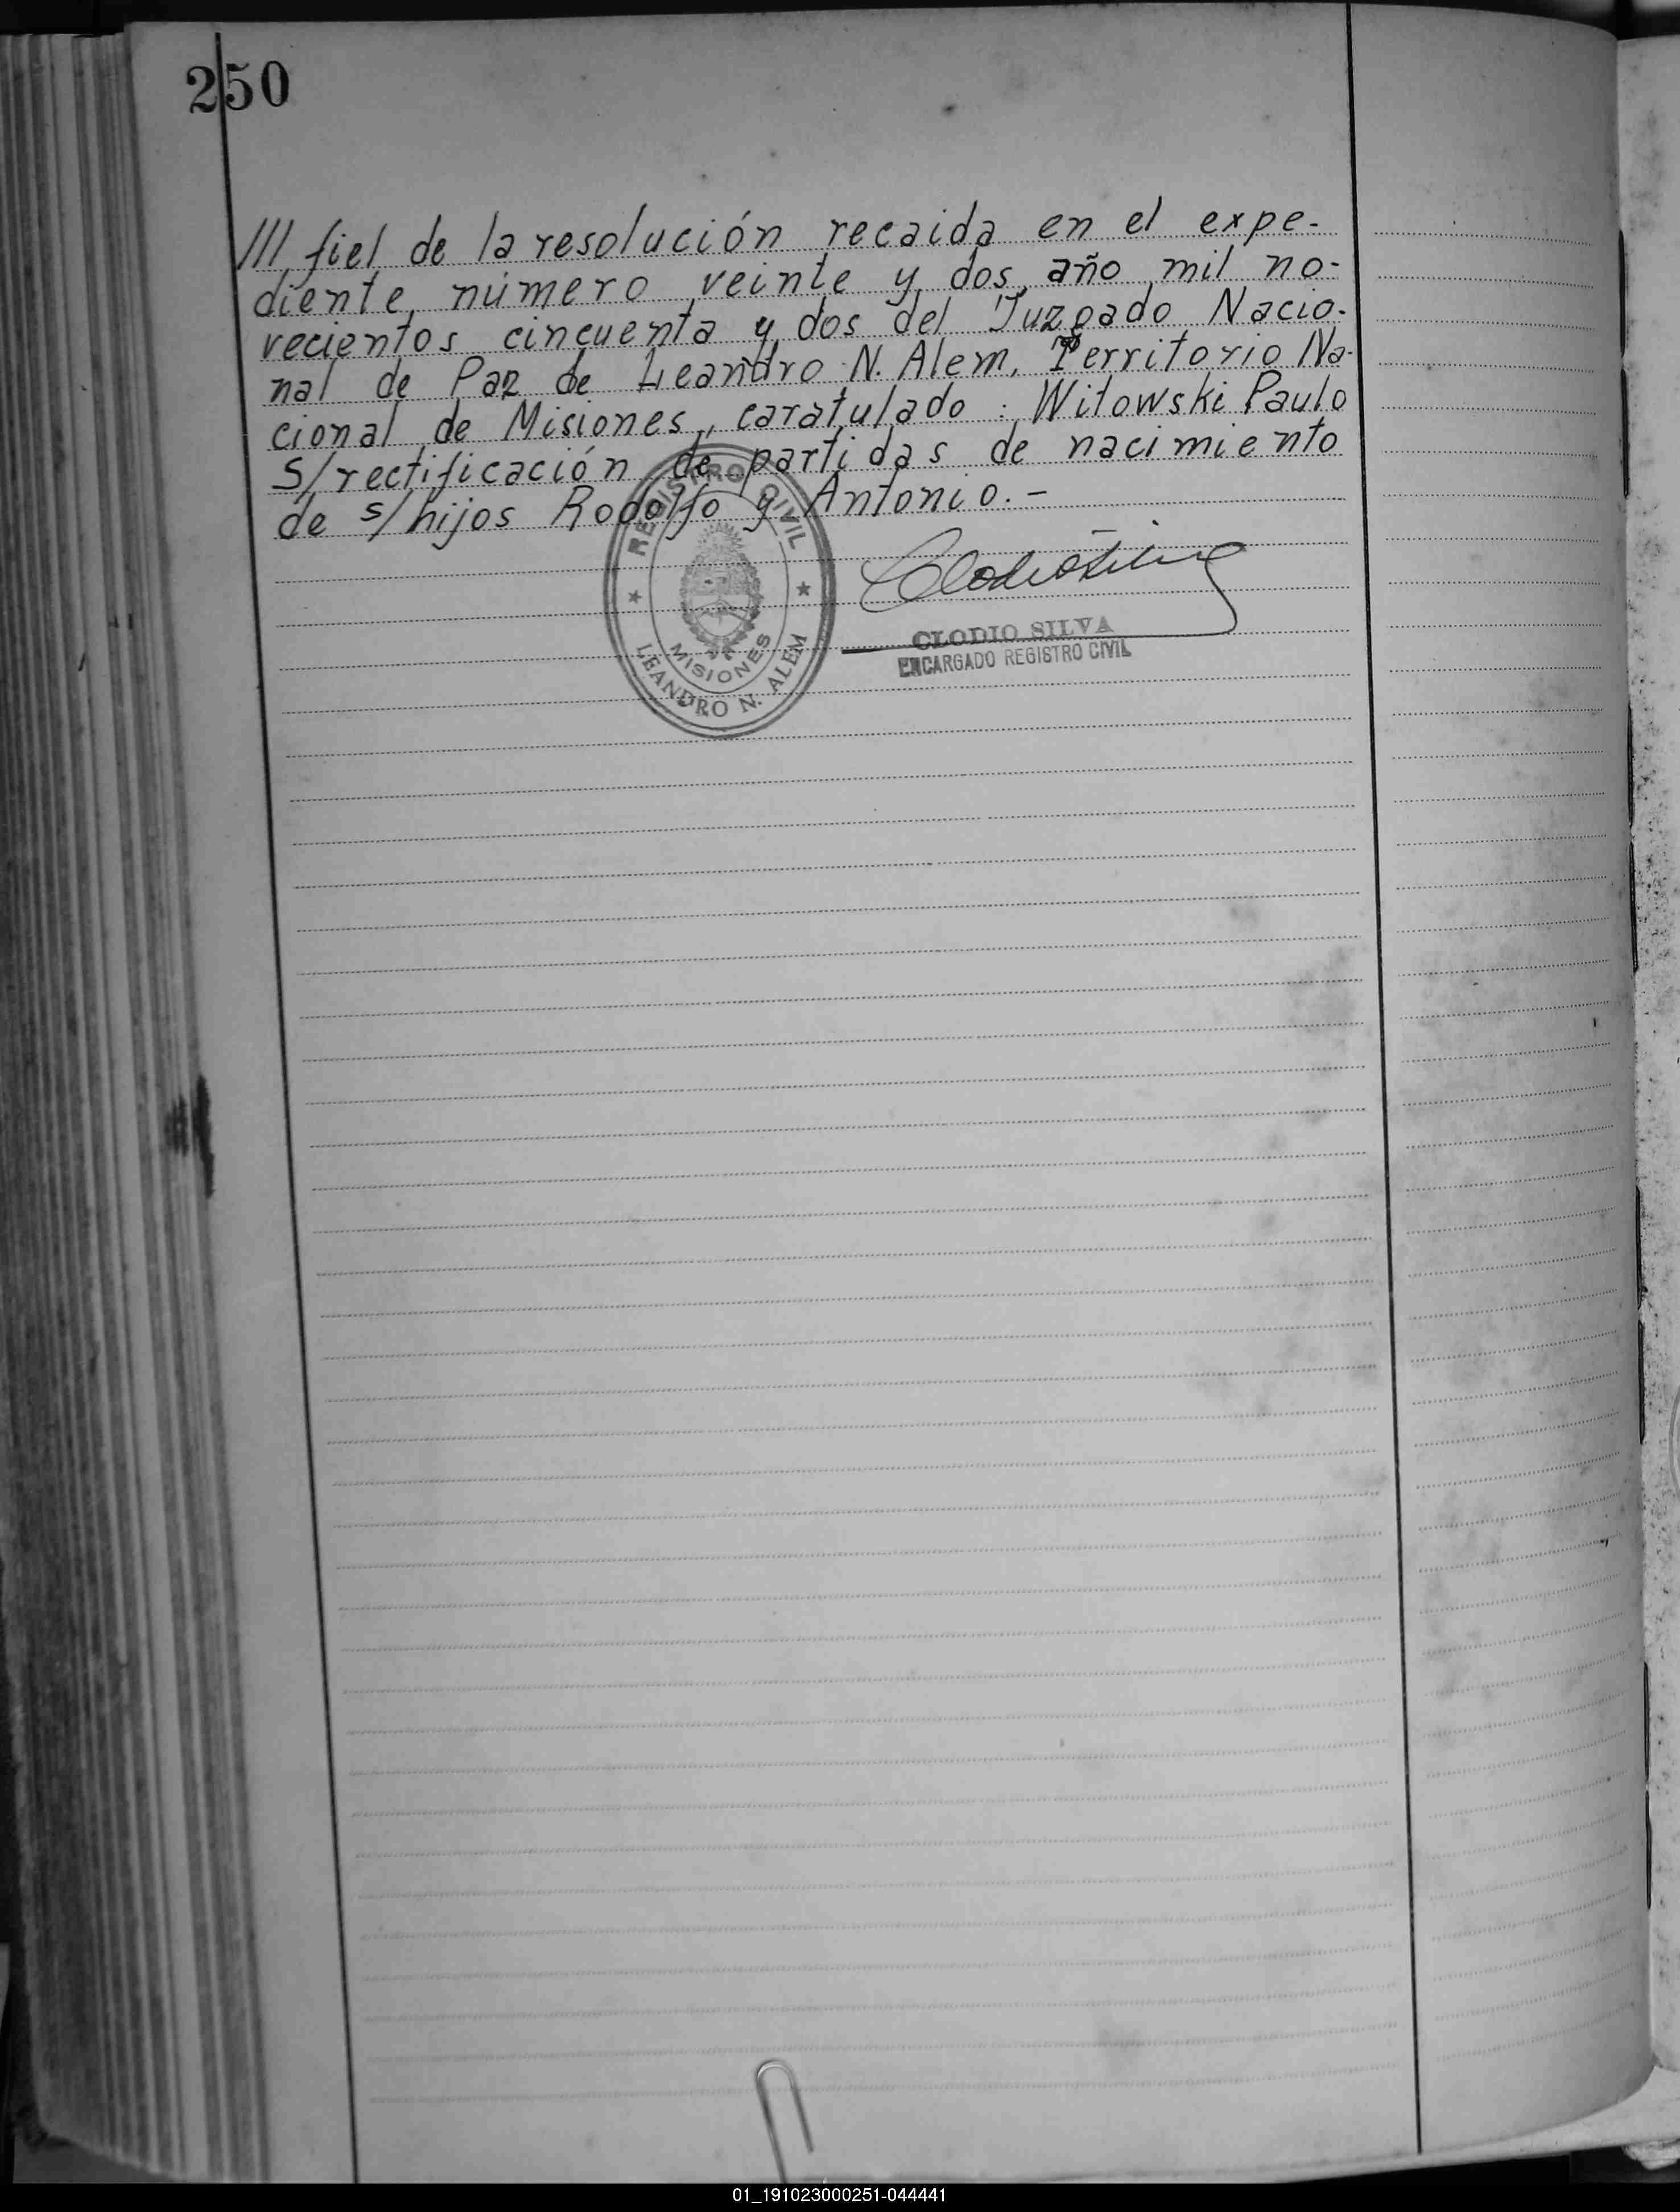 250
/// fiel de la resolución recaida en el expe-
diente número veinte y dos, año mil no-
vecientos cincuenta y dos del Juzgado Nacio-
nal de Paz de Leandro N. Alem, Territorio Na-
cional de Misiones, caratulado : Witowski Paulo
S/rectificación de partidas de nacimiento
de s/hijos Rodolfo y Antonio.-
REGISTRO CIVIL
MISIONES
LEANDRO N. ALEM
Clodio Silva
CLODIO SILVA
ENCARGADO REGISTRO CIVIL
01_191023000251-044441